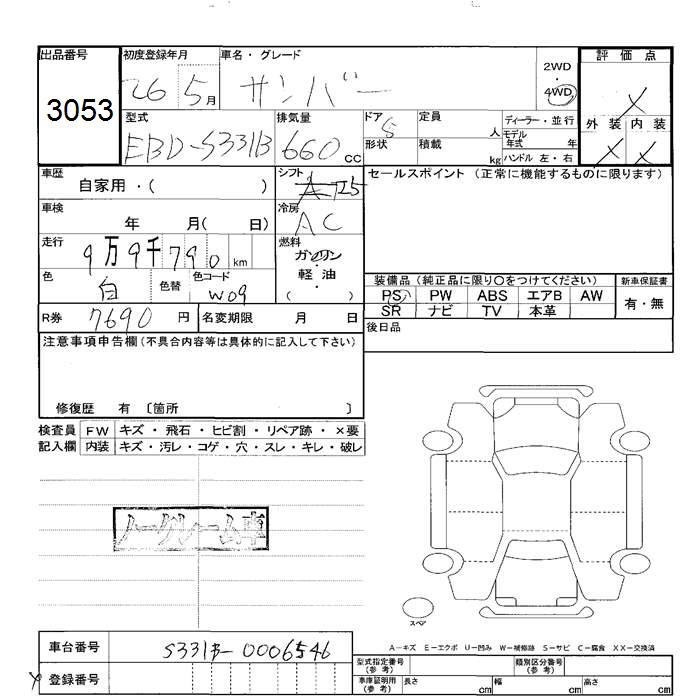 出品番号
3053
初度登録年月
26 5月
車名・グレード
サンバー
2WD
・
4WD
評価点
X
外装 内装
X X
型式
EBD-S331B
排気量
660 CC
ドア
5
形状
定員
人
積載
kg
ディーラー・並行
モデル
年式 年
ハンドル 左・右
車歴
自家用・( )
シフト
セールスポイント (正常に機能するものに限ります)
車検
年 月( 日)
冷房
AC
走行
9万9千790 km
燃料
ガソリン
・
軽・油
( )
色
白
色替
色コード
W09
装備品 (純正品に限り〇をつけてください)
新車保証書
PS PW ABS エアB AW
SR ナビ TV 本革
有・無
R券 7690 円
名変期限 月 日
後日品
注意事項申告欄(不具合内容等は具体的に記入して下さい)
修復歴 有 〔箇所 〕
検査員 FW キズ・飛石・ヒビ割・リペア跡・×要
記入欄 内装 キズ・汚レ・コゲ・穴・スレ・キレ・破レ
ノークレーム車
スペア
A―キズ E―エクボ U―凹み W―補修跡 S―サビ C―腐食 XX―交換済
車台番号 S331B-0006546
登録番号
型式指定番号
(参考)
類別区分番号
(参考)
車庫証明用
(参考)
長さ cm 幅 cm 高さ cm